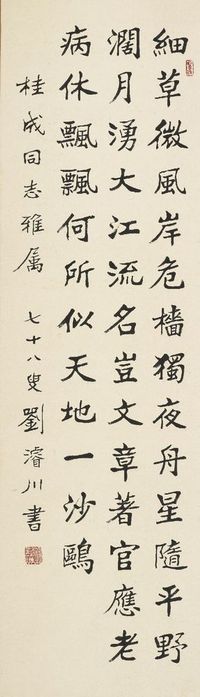 細草微風岸危檣獨夜舟星隨平野
濶月湧大江流名豈文章著官應老
病休飄飄何所似天地一沙鷗
桂成同志雅属 七十八叟劉濬川書